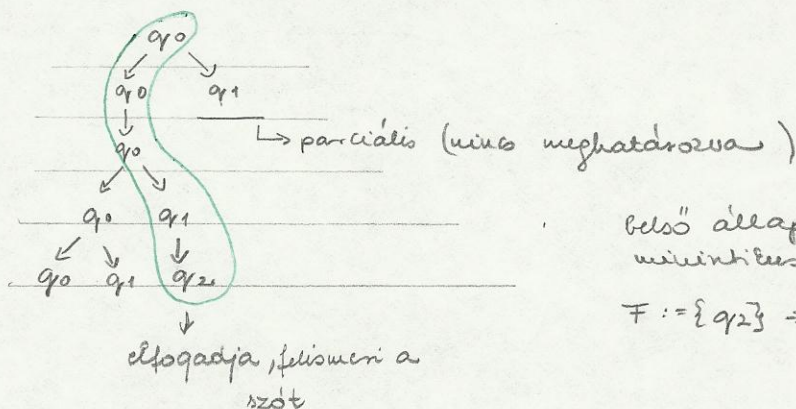 q0
q0 q1
→ parciális (nincs meghatározva)
q0
q0 q1
belső állap
q0 q1 q2
F := {q2} →
elfogadja, felismeri a
szót